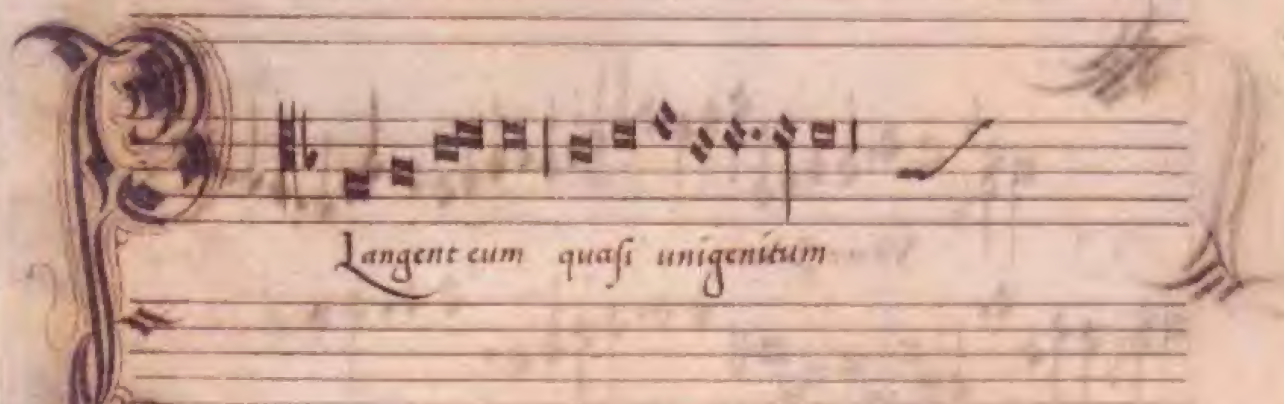 Plangent eum quasi unigenitum